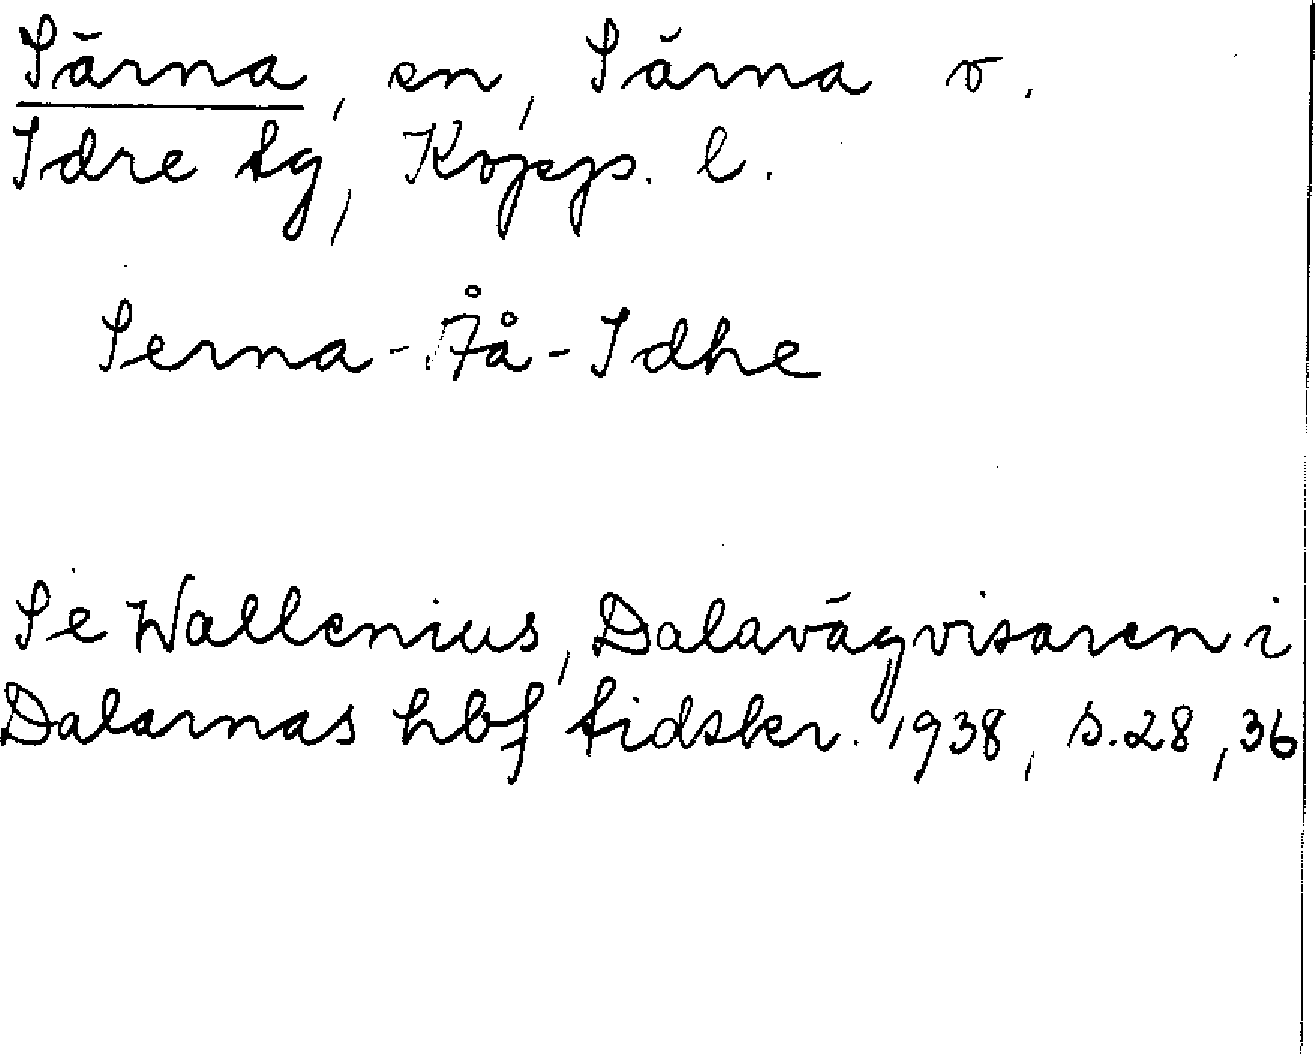 Särna, en, Särna o.
Idre tg, Kopp. l.
Serna-Åå-Idhe
Se Wallenius, Dalavägvisaren i
Dalarnas hbf tidskr. 1938, s. 28, 36